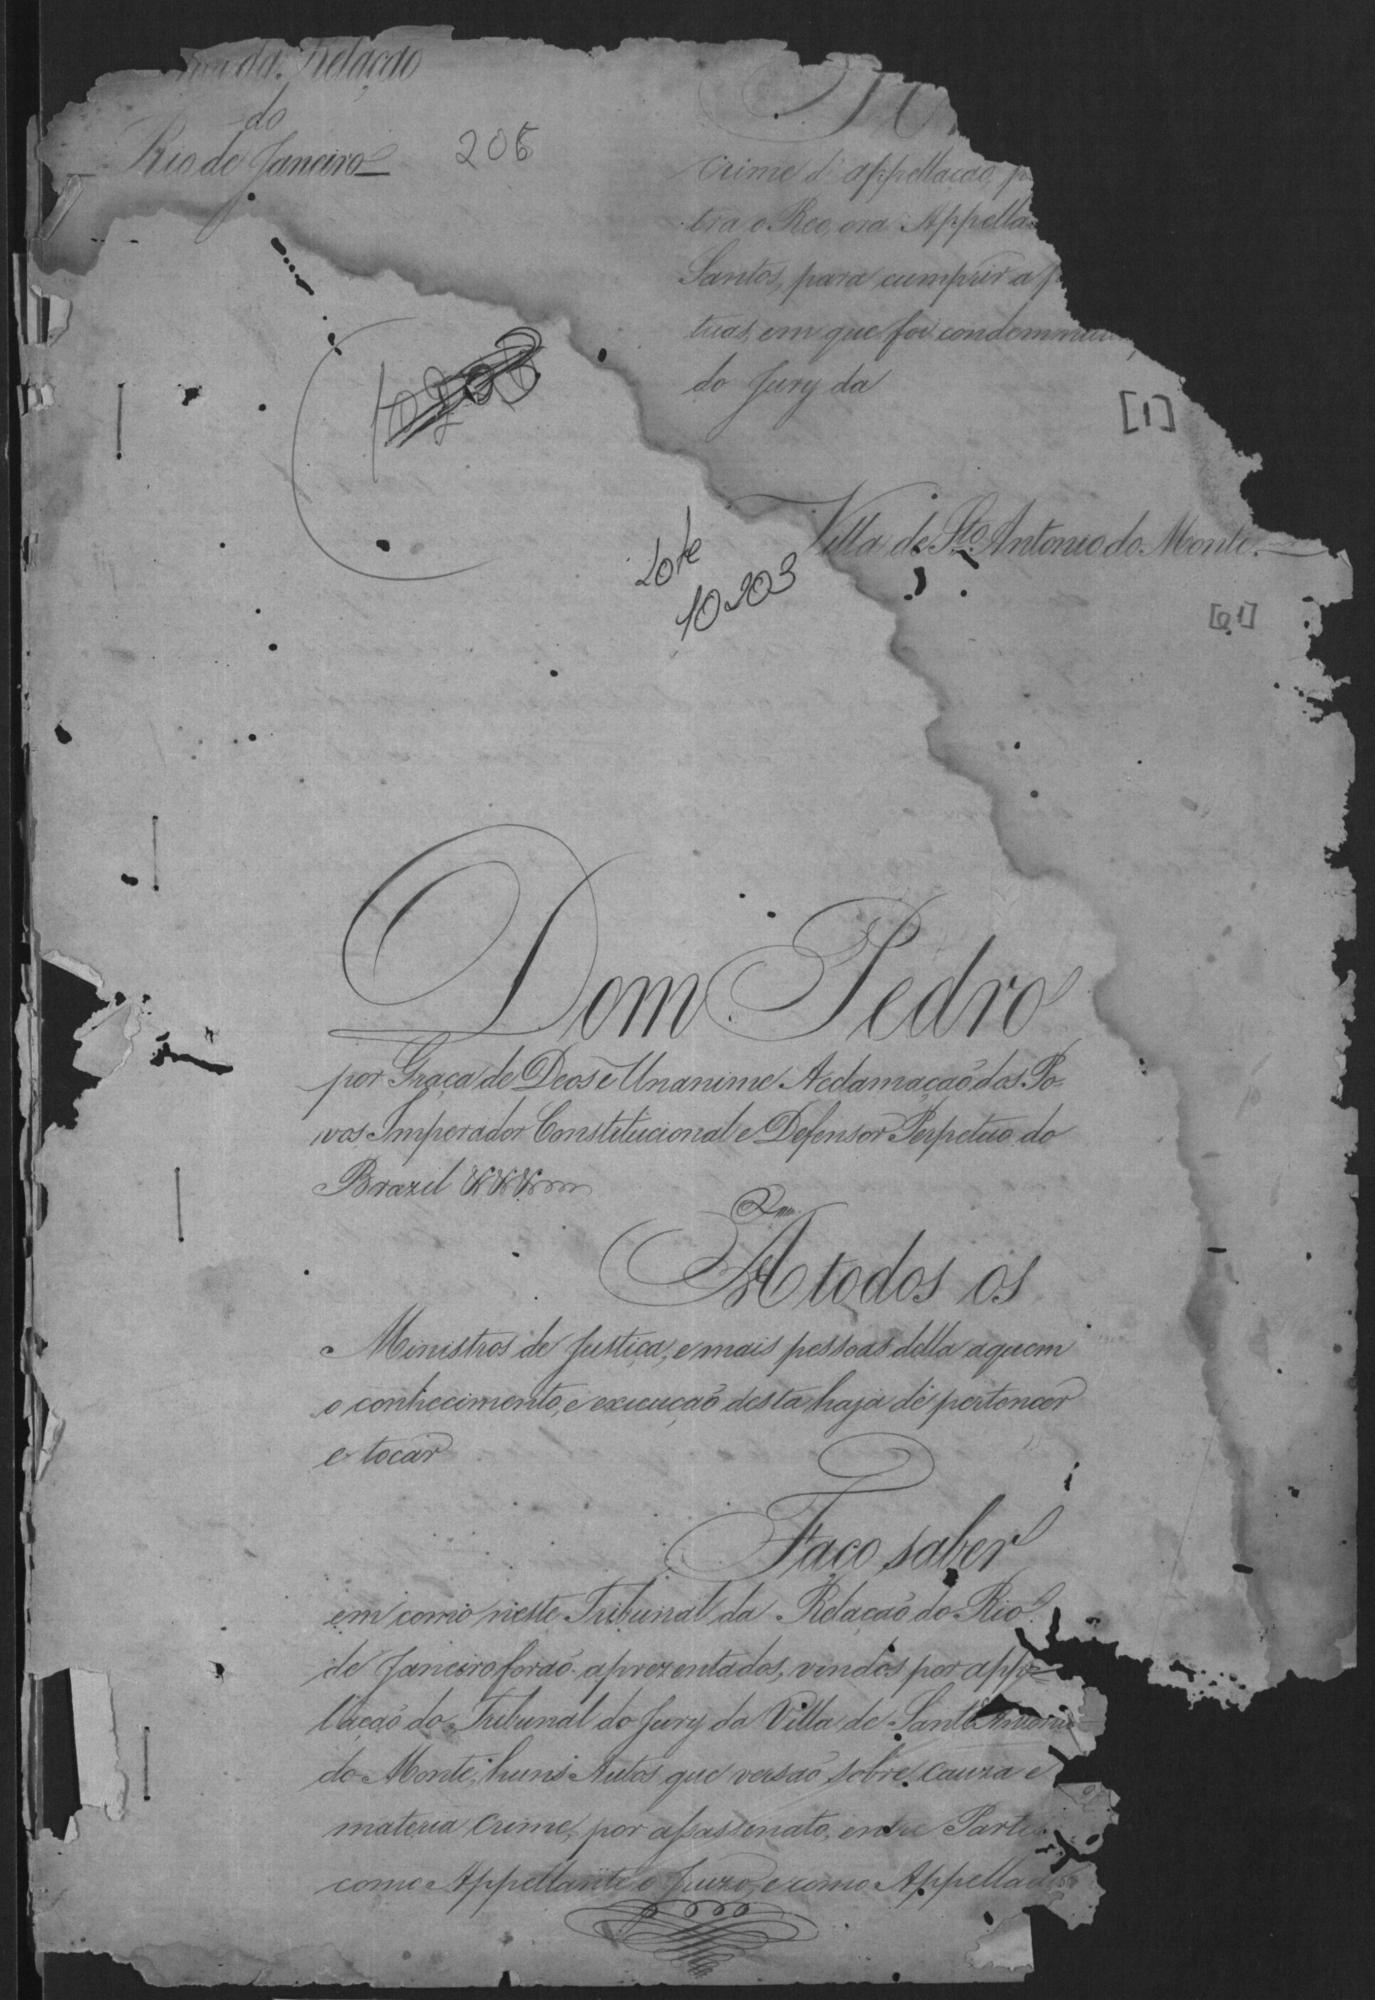 da Relação
do
Rio de Janeiro
206
crime d'appellação, p
tra o Reo, ora Appella
Santos, para cumprir a p
tuas, em que foi condemna
do Jury da
[1]
Villa de Sto Antonio do Monte.
lote
10203
[01]
Dom Pedro
por Graça de Deos e Unanime Acclamação dos Po-
vos Imperador Constitucional e Defensor Perpetuo do
Brazil
A todos os
Ministros de Justiça, e mais pessoas della aquem
o conhecimento, e execução desta haja de pertencer
e tocar
Faço saber
em como neste Tribunal da Relação do Rio
de Janeiro forão aprezentados, vindos por appe-
llação do Tribunal do Jury da Villa de Santo Antonio
do Monte, huns Autos que versão sobre cauza e
materia crime, por assassinato, entre Partes
como Appellante o Juizo, e como Appellado